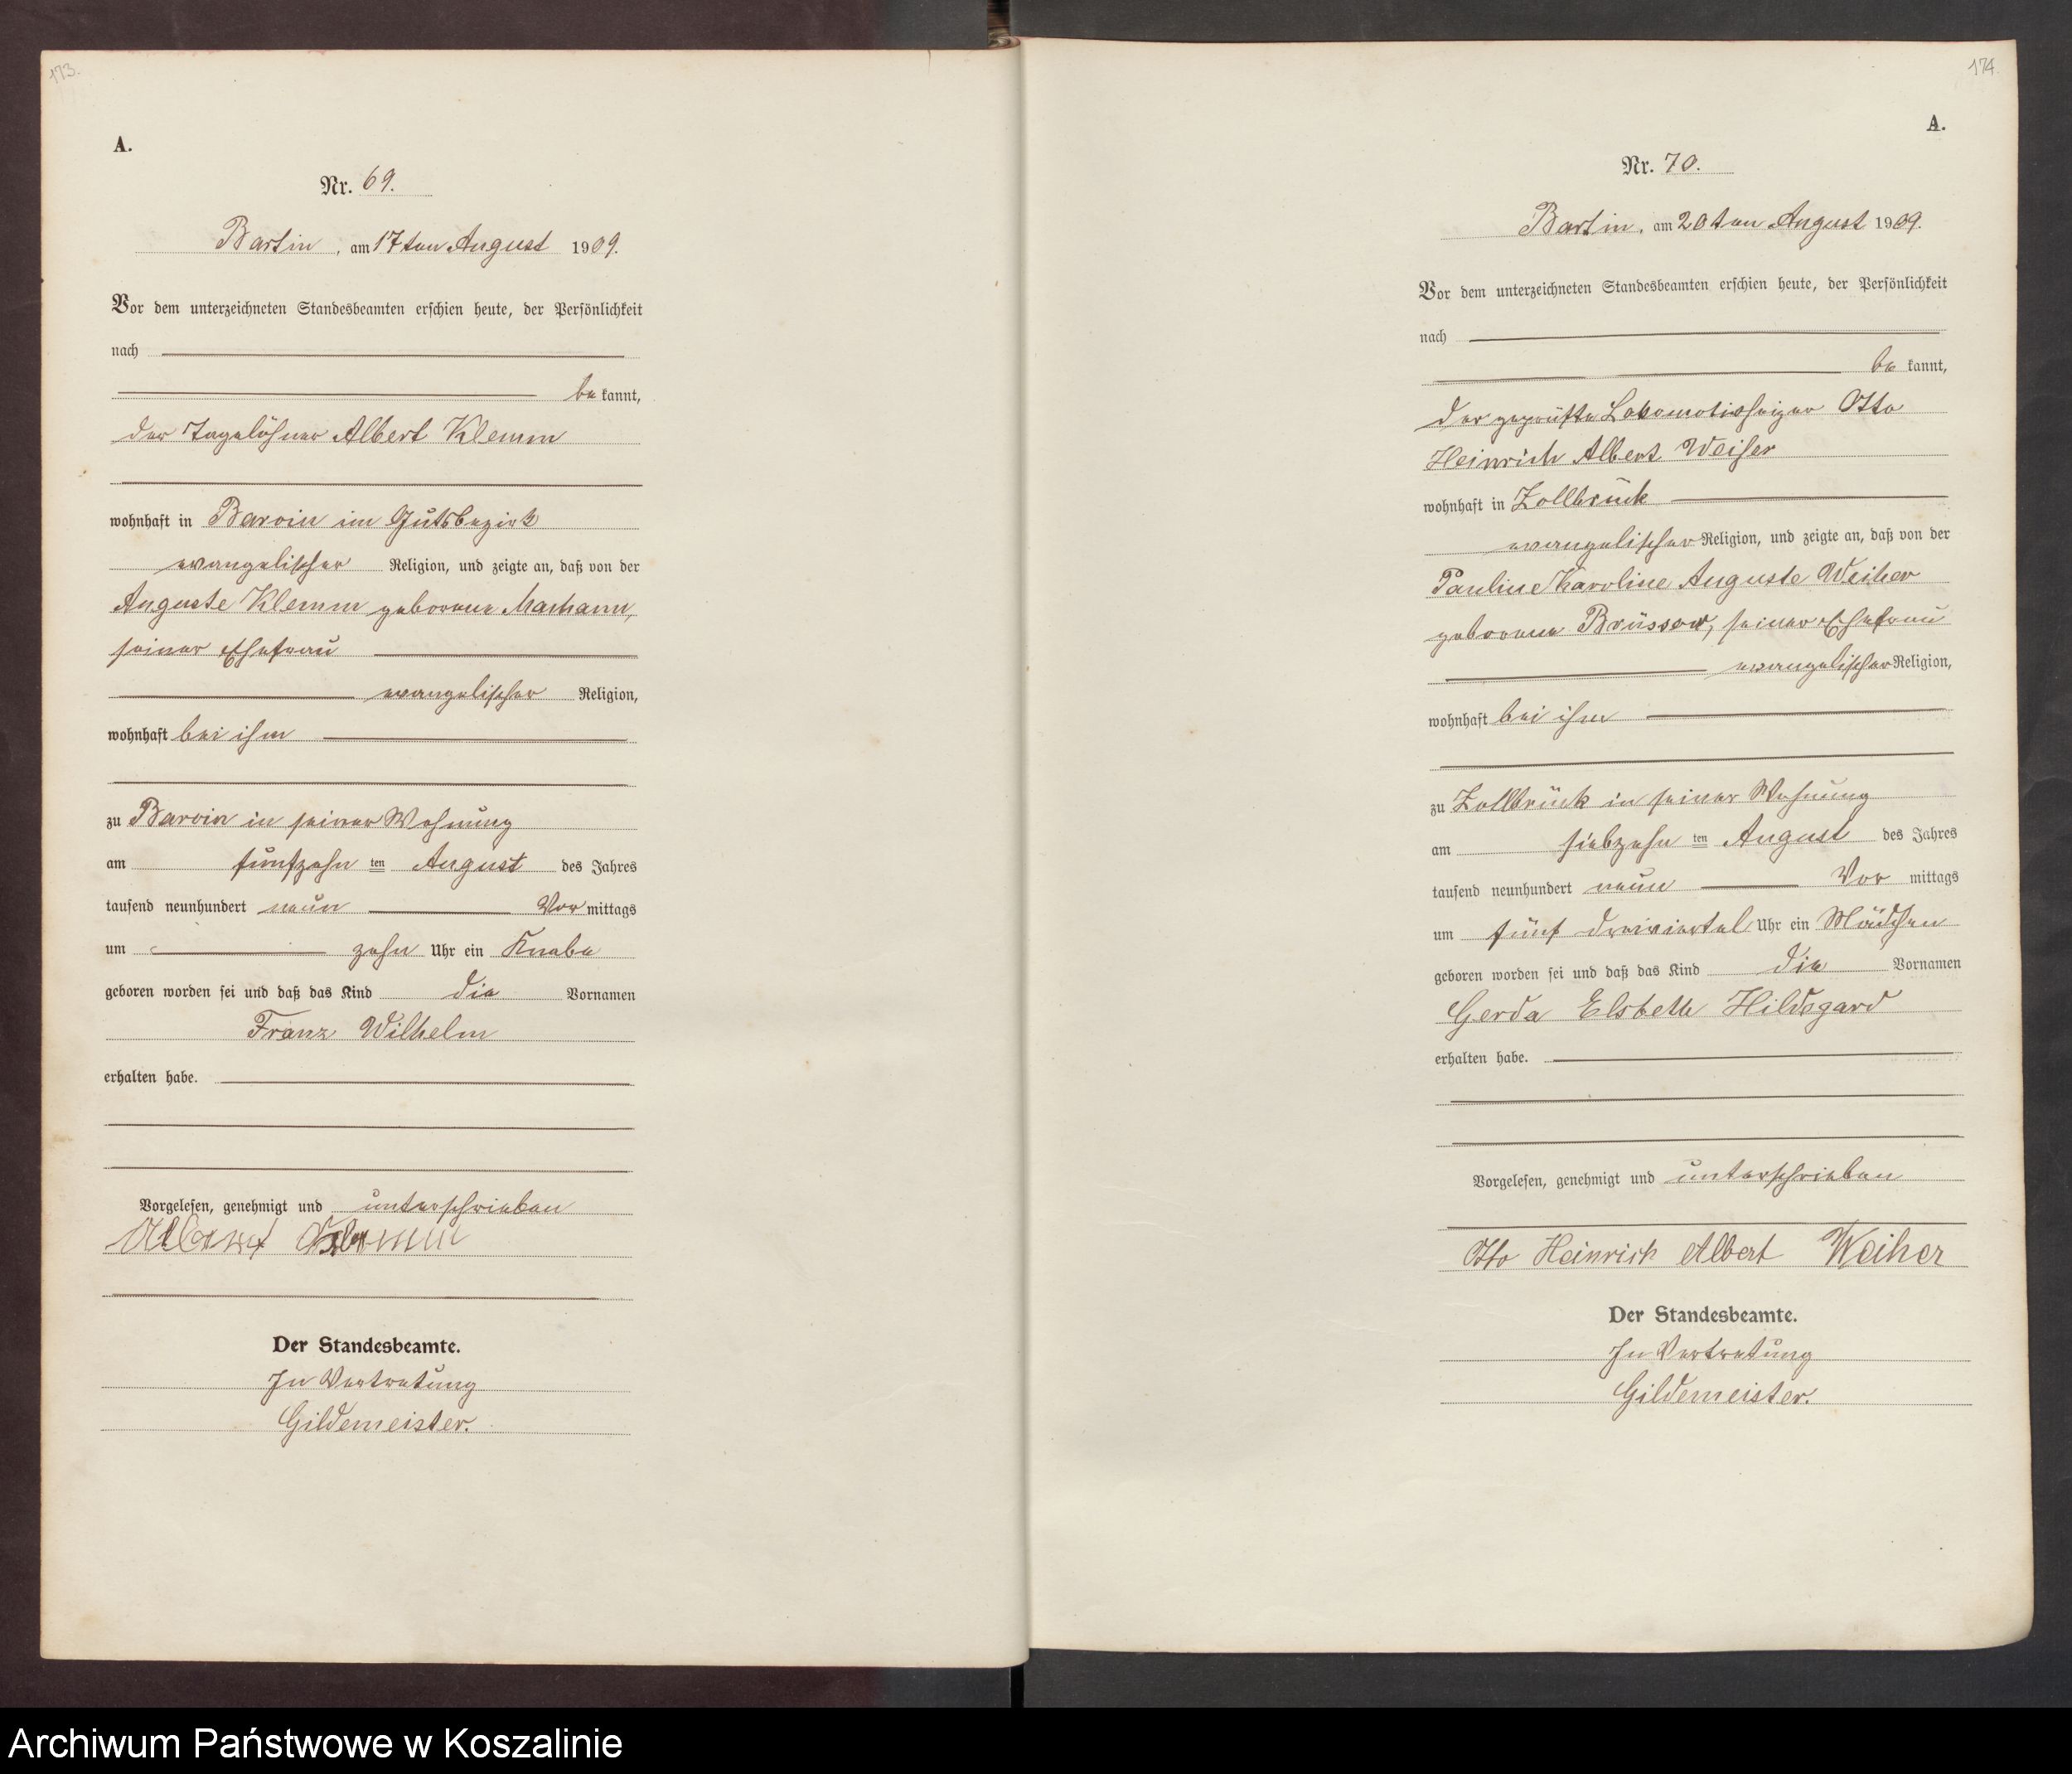 173.
A.
Nr. 69.
Bartin, am 17ten August 1909.
Vor dem unterzeichneten Standesbeamten erschien heute, der Persönlichkeit
nach
bekannt,
der Tagelöhner Albert Klemm
wohnhaft in Barvin im Gutsbezirk
evangelischer Religion, und zeigte an, daß von der
Auguste Klemm geborene
seiner Ehefrau
evangelischer Religion,
wohnhaft bei ihm
zu Barvin in seiner Wohnung
am fünfzehn ten August des Jahres
tausend neunhundert neun Vormittags
um zehn Uhr ein Knabe
geboren worden sei und daß das Kind die Vornamen
Franz Wilhelm
erhalten habe.
Vorgelesen, genehmigt und unterschrieben
Albert Klemm
Der Standesbeamte.
In Vertretung
Gildemeister.
174.
A.
Nr. 70.
Bartin, am 20ten August 1909.
Vor dem unterzeichneten Standesbeamten erschien heute, der Persönlichkeit
nach
bekannt,
der geprüfte Lokomotivheizer Otto
Heinrich Albert Weiher
wohnhaft in Zollbrück
evangelischer Religion, und zeigte an, daß von der
Pauline Karoline Auguste Weiher
geborene Brüssow, seiner Ehefrau
evangelischer Religion,
wohnhaft bei ihm
zu Zollbrück in seiner Wohnung
am siebzehn ten August des Jahres
tausend neunhundert neun Vormittags
um fünf dreiviertel Uhr ein Mädchen
geboren worden sei und daß das Kind die Vornamen
Gerda Elsbeth Hildegard
erhalten habe.
Vorgelesen, genehmigt und unterschrieben
Otto Heinrich Albert Weiher
Der Standesbeamte.
In Vertretung
Gildemeister.
Archiwum Państwowe w Koszalinie